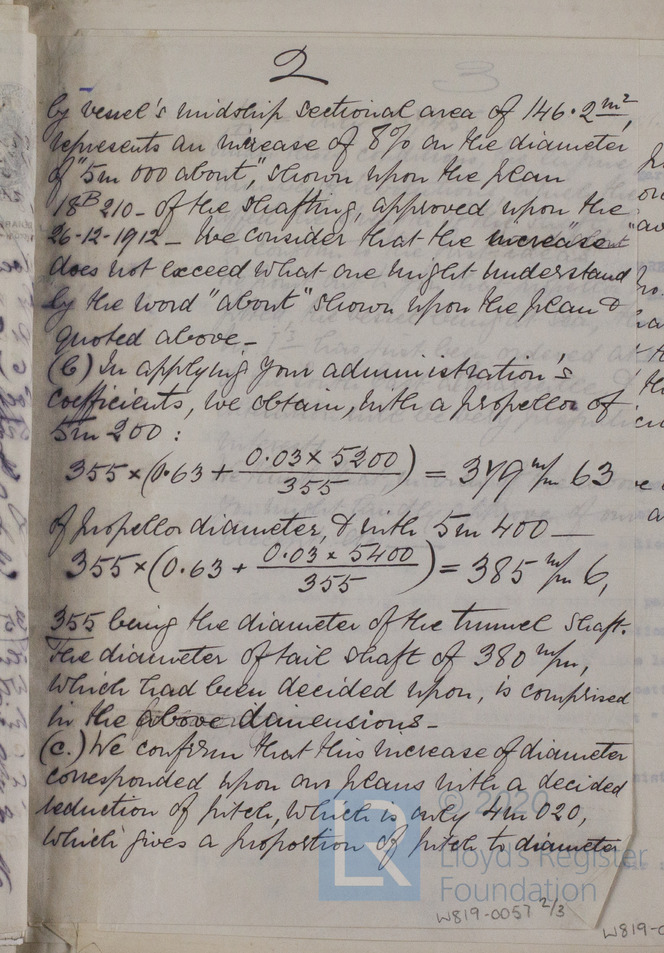 2
by vessel's midship sectional area of 146.2 m²,
represents an increase of 8% on the diameter
of "5m 000 about", shown upon the plan
18ᴮ 210 - of the shafting, approved upon the
26-12-1912 - We consider that the increase
does not exceed what one might understand
by the word "about" shown upon the plan &
quoted above -
(b) In applying your administration's
coefficients, we obtain, with a propellor of
5m 200 :
355 × (0.63 + 0.03 × 5200 / 355) = 379 m/m 63
of propellor diameter, & with 5m 400 —
355 × (0.63 + 0.03 × 5400 / 355) = 385 m/m 6,
355 being the diameter of the tunnel shaft.
The diameter of tail shaft of 380 m/m,
which had been decided upon, is comprised
in the above dimensions -
(c.) We confirm that this increase of diameter
corresponded upon our plans with a decided
reduction of pitch, which is only 4m 020,
which gives a proportion of pitch to diameter
© 2020
Lloyd's Register
Foundation
W819-0057 2/3
W819-0